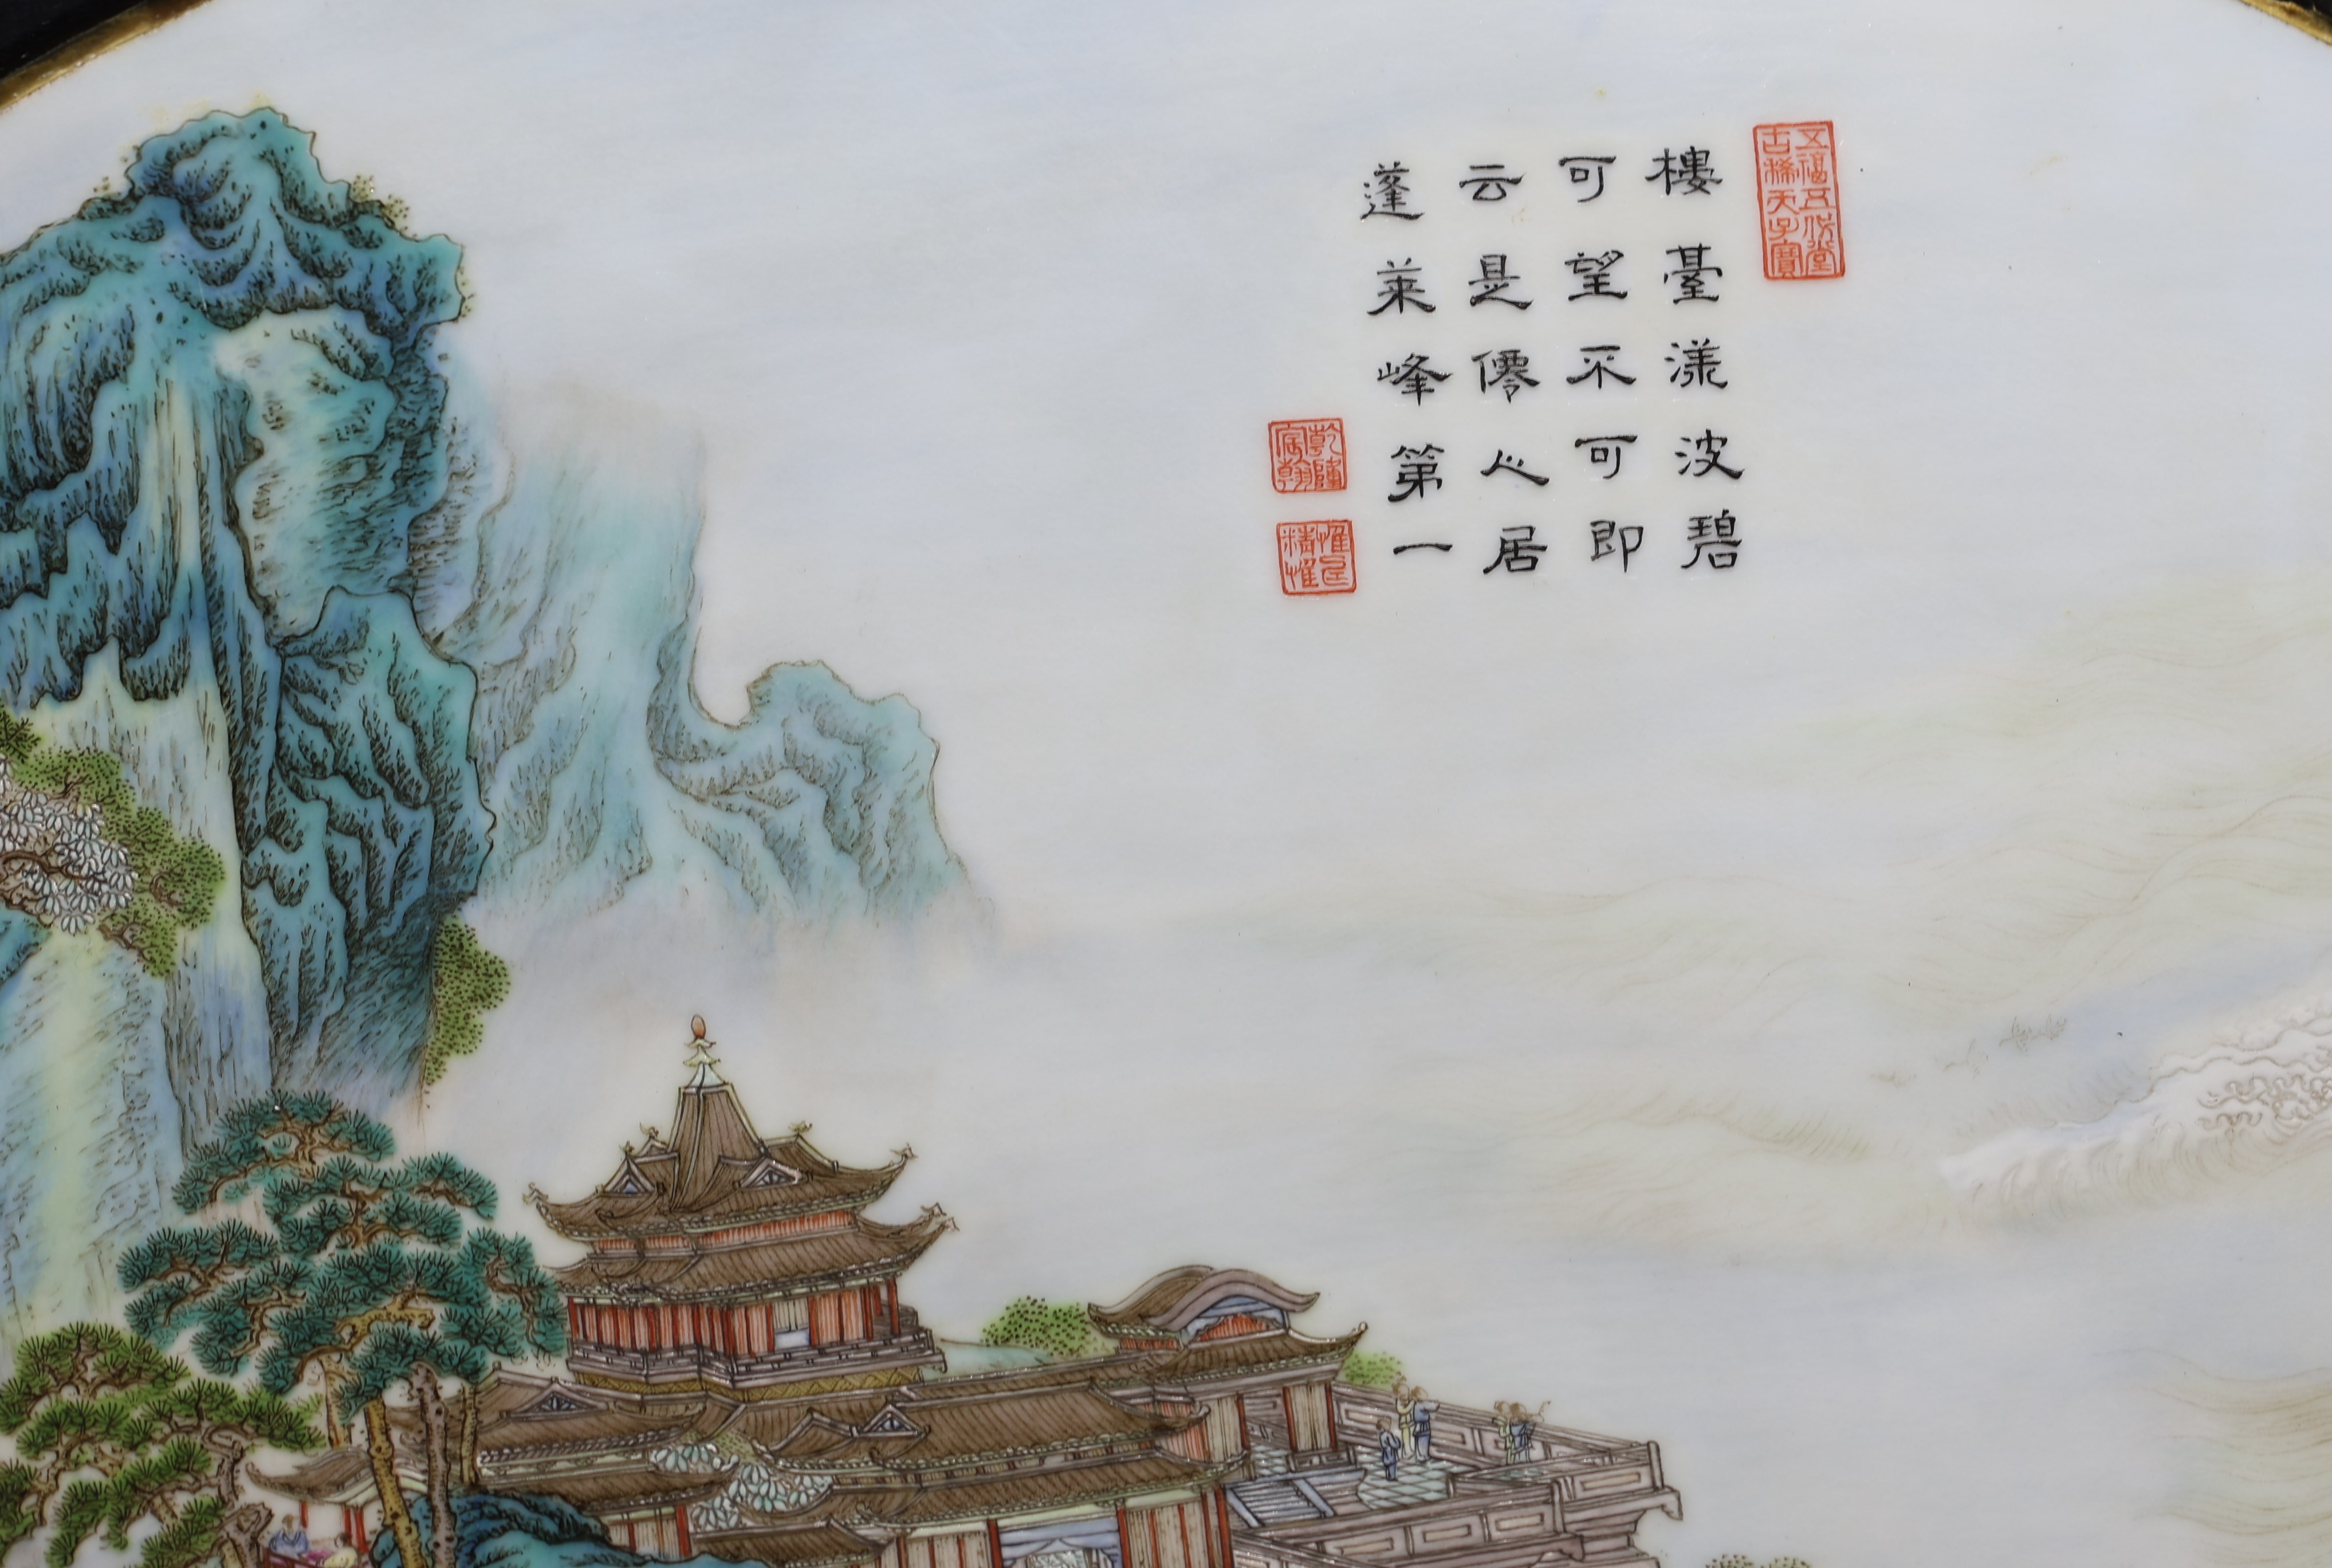 五福五代堂
古稀天子寶
樓臺漾波碧
可望不可即
云是僊人居
蓬萊峰第一
乾隆
宸翰
惟精惟一